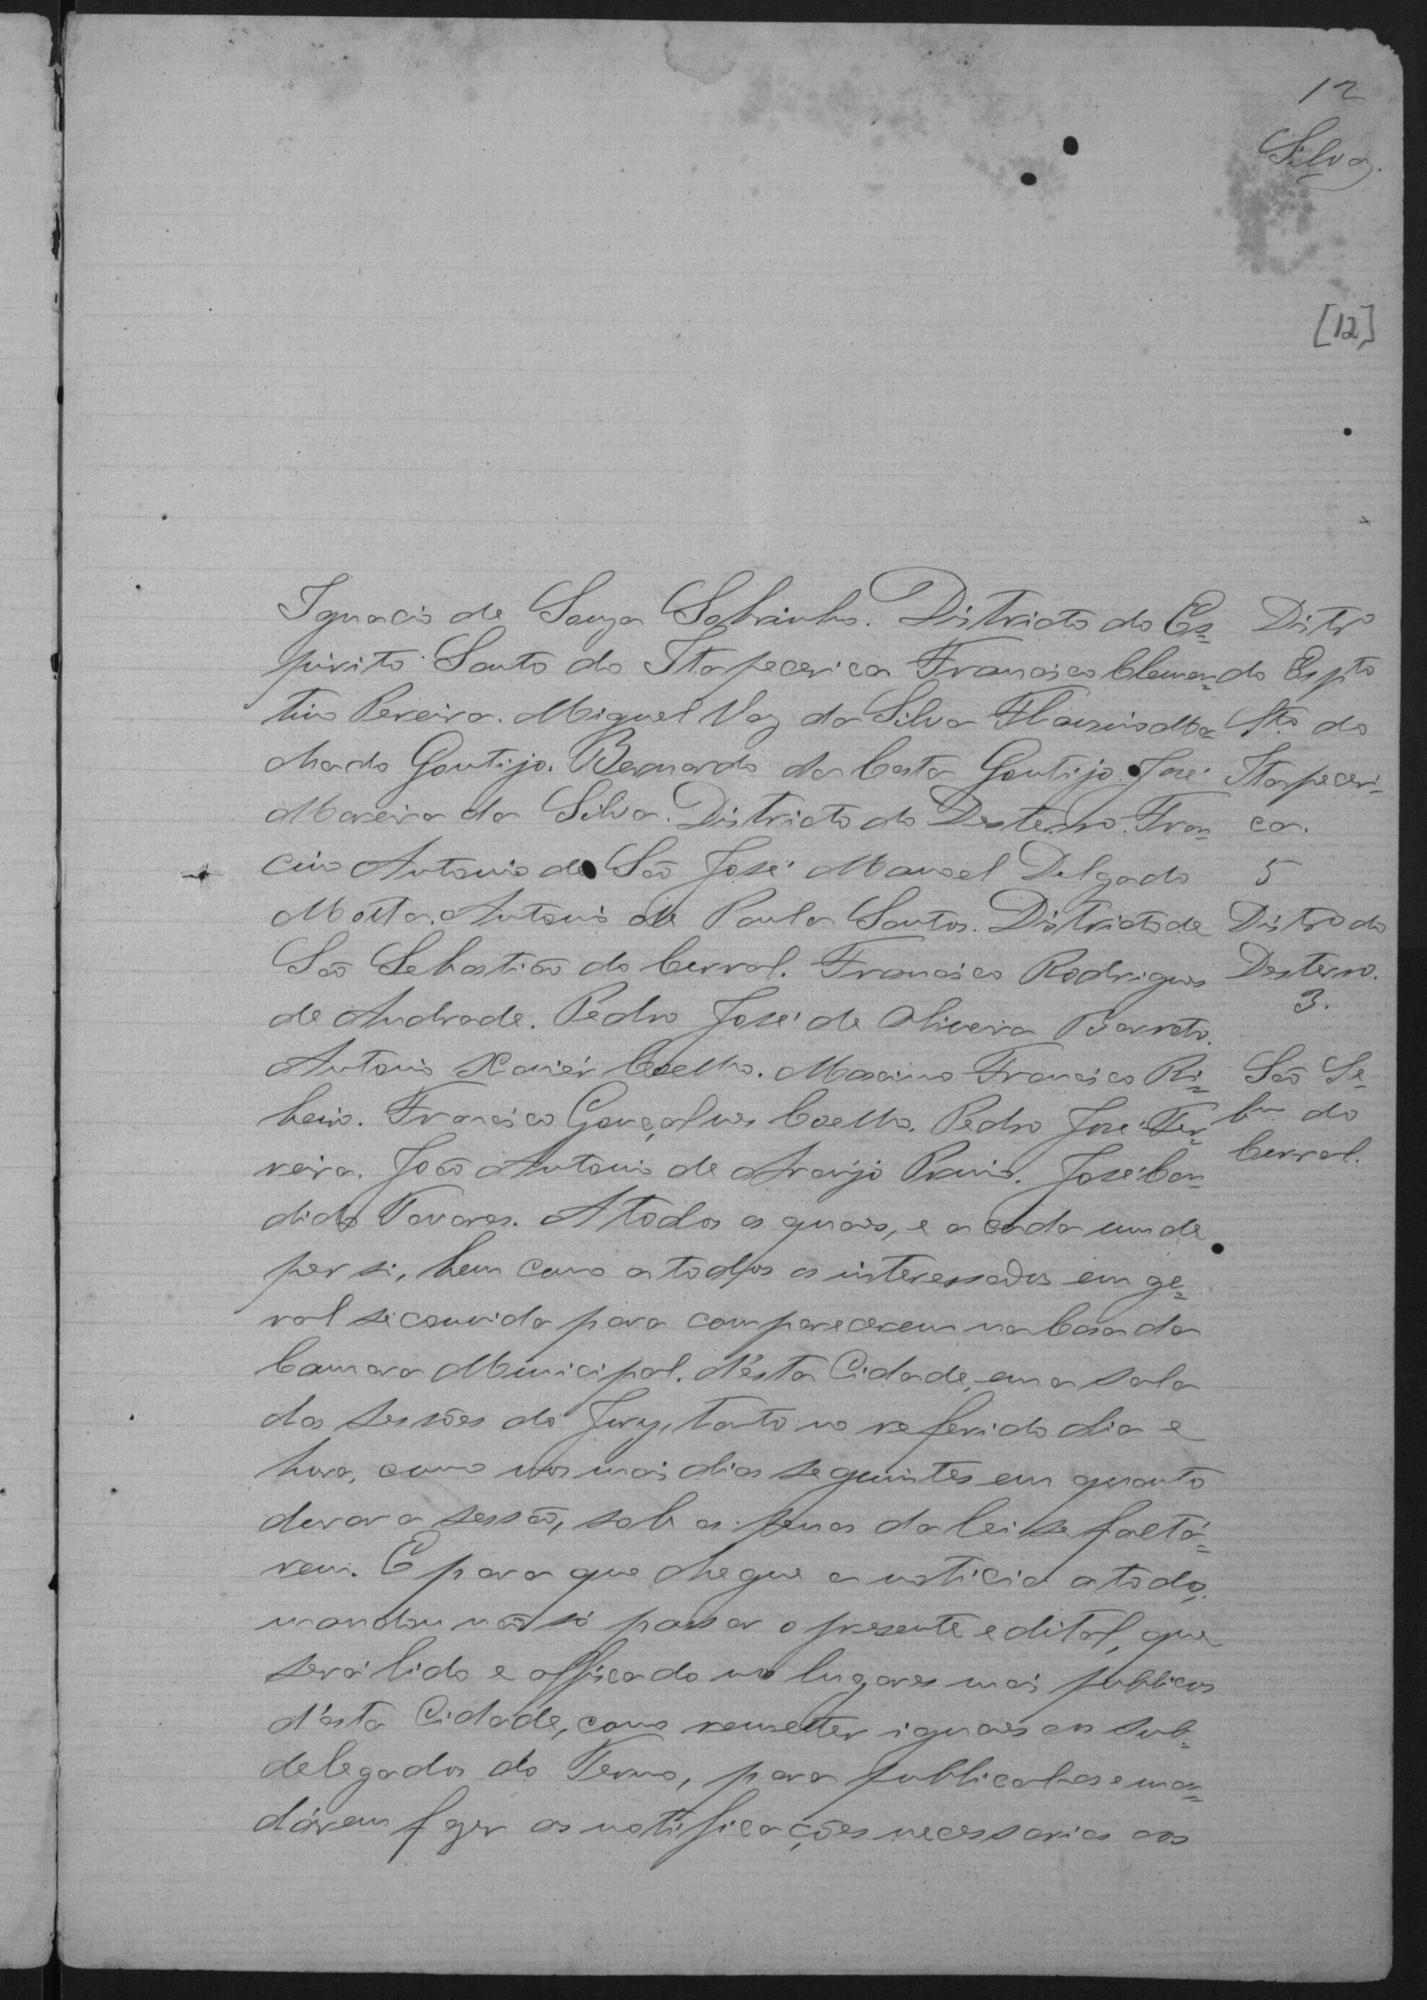 12
Silva.
[12]
Ignacio de Souza Sobrinho. Districto do Es=
pirito Santo do Itapecerica Francisco Clemen=
tino Pereira. Miguel Vaz da Silva Flausino Ma=
chado Gontijo. Bernardo da Costa Gontijo. José
Moreira da Silva. Districto do Desterro. Fran=
cino Antonio de São José Manoel Delgado
Motta. Antonio de Paula Santos. Districto de
São Sebastião do Curral. Francisco Rodrigues
de Andrade. Pedro José de Oliveira Barreto.
Antonio Xavier Coelho. Maximo Francisco Ri=
beiro. Francisco Gonçalves Coelho. Pedro José Fer=
reira. João Antonio de Araujo Primo. José Can=
dido Tavares. A todos os quaes, e a cada um de
per si, bem como a todos os interessados em ge=
ral se convida para comparecerem na Casa da
Camara Municipal. d'ésta Cidade, em a sala
das sessões do Jury, tanto no referido dia e
hora, como nos mais dias seguintes em quanto
durar a sessão, sob as penas da lei se faltá=
rem. E para que chegue a noticia a todos,
mandou não só passar o presente edital, que
será lido e afficado nos lugares mais publicos
d'ésta Cidade, como remetter iguaes aos sub=
delegados do Termo, para publical-os e man=
dárem fazer as notificações necessarias aos
Distro
do Espto
Sto do
Itapeceri=
ca.
5
Distro do
Desterro.
3.
São Se=
bm do
Curral.